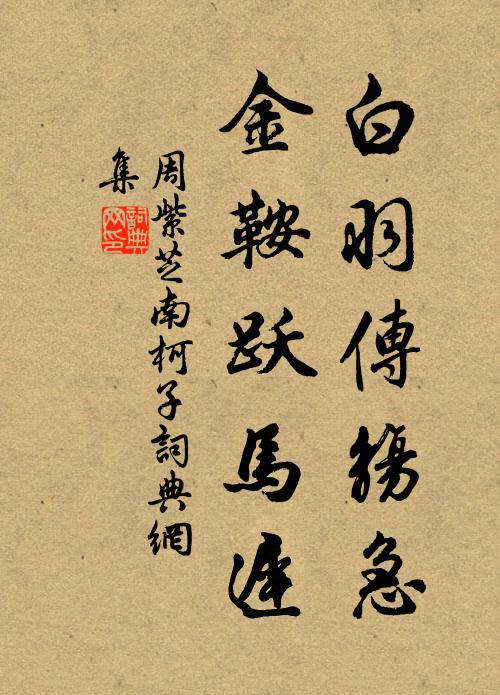 白羽傳觴急
金鞍跃馬遲
周紫芝南柯子詞典網
集
詞典网印